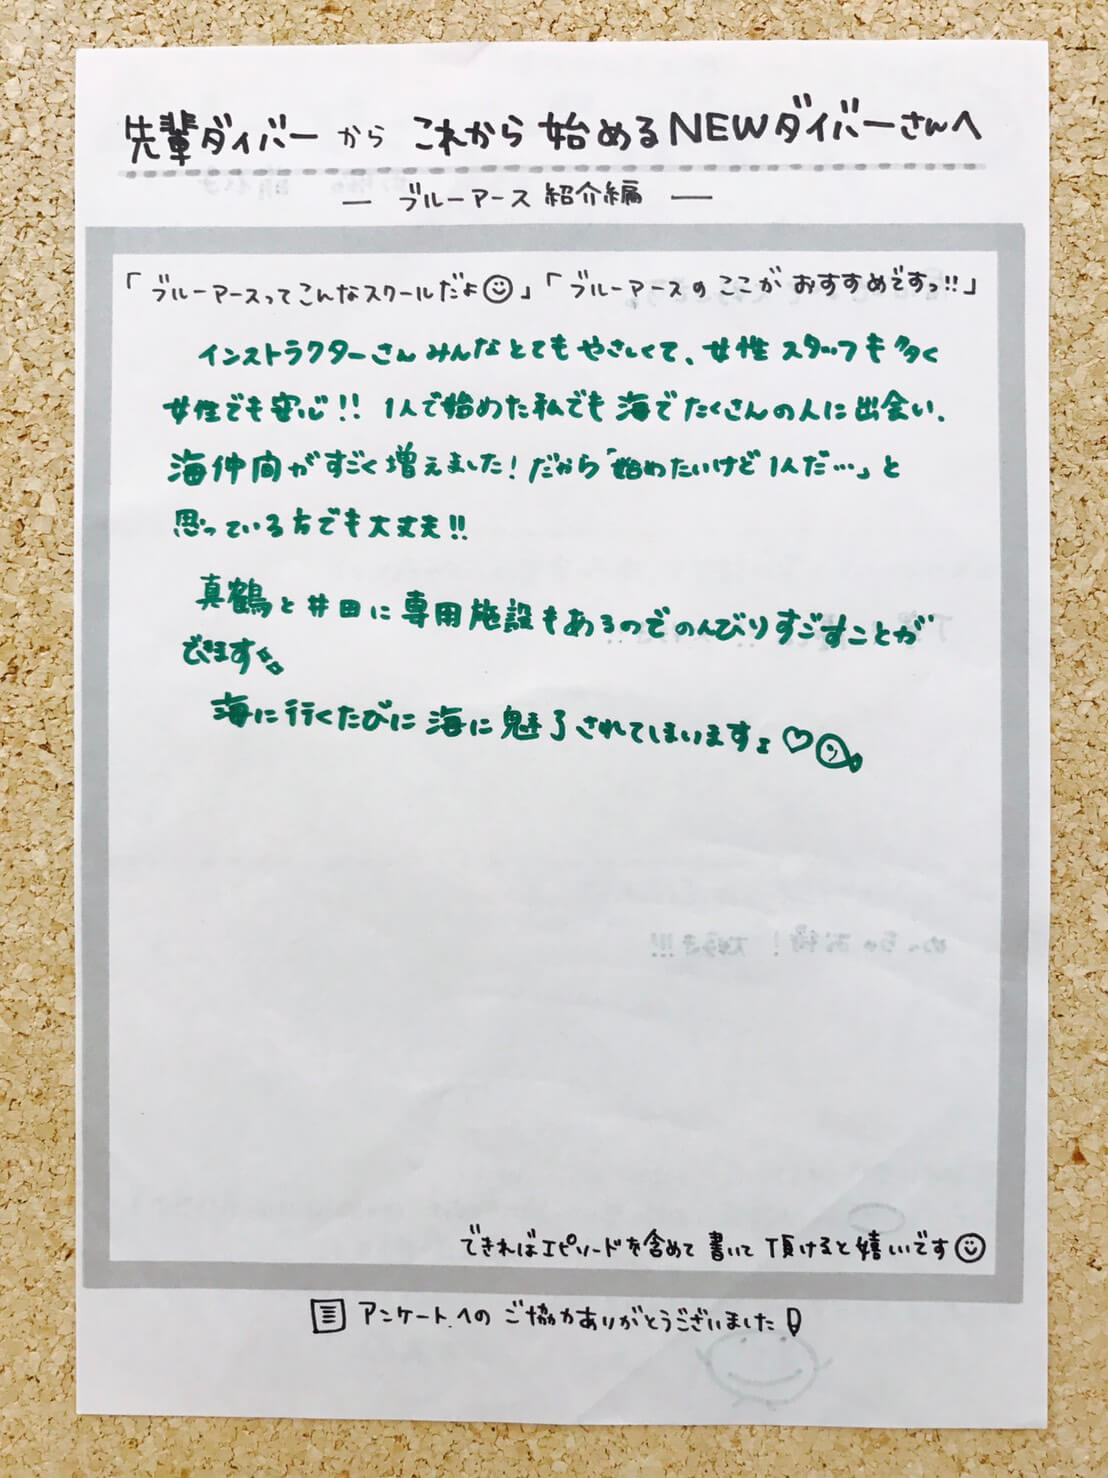 先輩ダイバーから これから始めるNEWダイバーさんへ
― ブルーアース 紹介編 ―
「ブルーアースってこんなスクールだよ☺」「ブルーアースの ここが おすすめですっ!!」
インストラクターさん みんな とても やさしくて、女性 スタッフも 多く
女性でも 安心!! 1人で始めた私でも 海で たくさんの人に出会い、
海仲間が すごく 増えました! だから「始めたいけど 1人だ…」と
思っている方でも大丈夫!!
真鶴と 井田に 専用施設もあるので のんびり すごすことが
できます
海に行くたびに 海に 魅了されてしまいますよ♡
できればエピソードを含めて 書いて 頂けると 嬉しいです☺
アンケートへの ご協力ありがとうございました
めっちゃお得! 大好き!!!